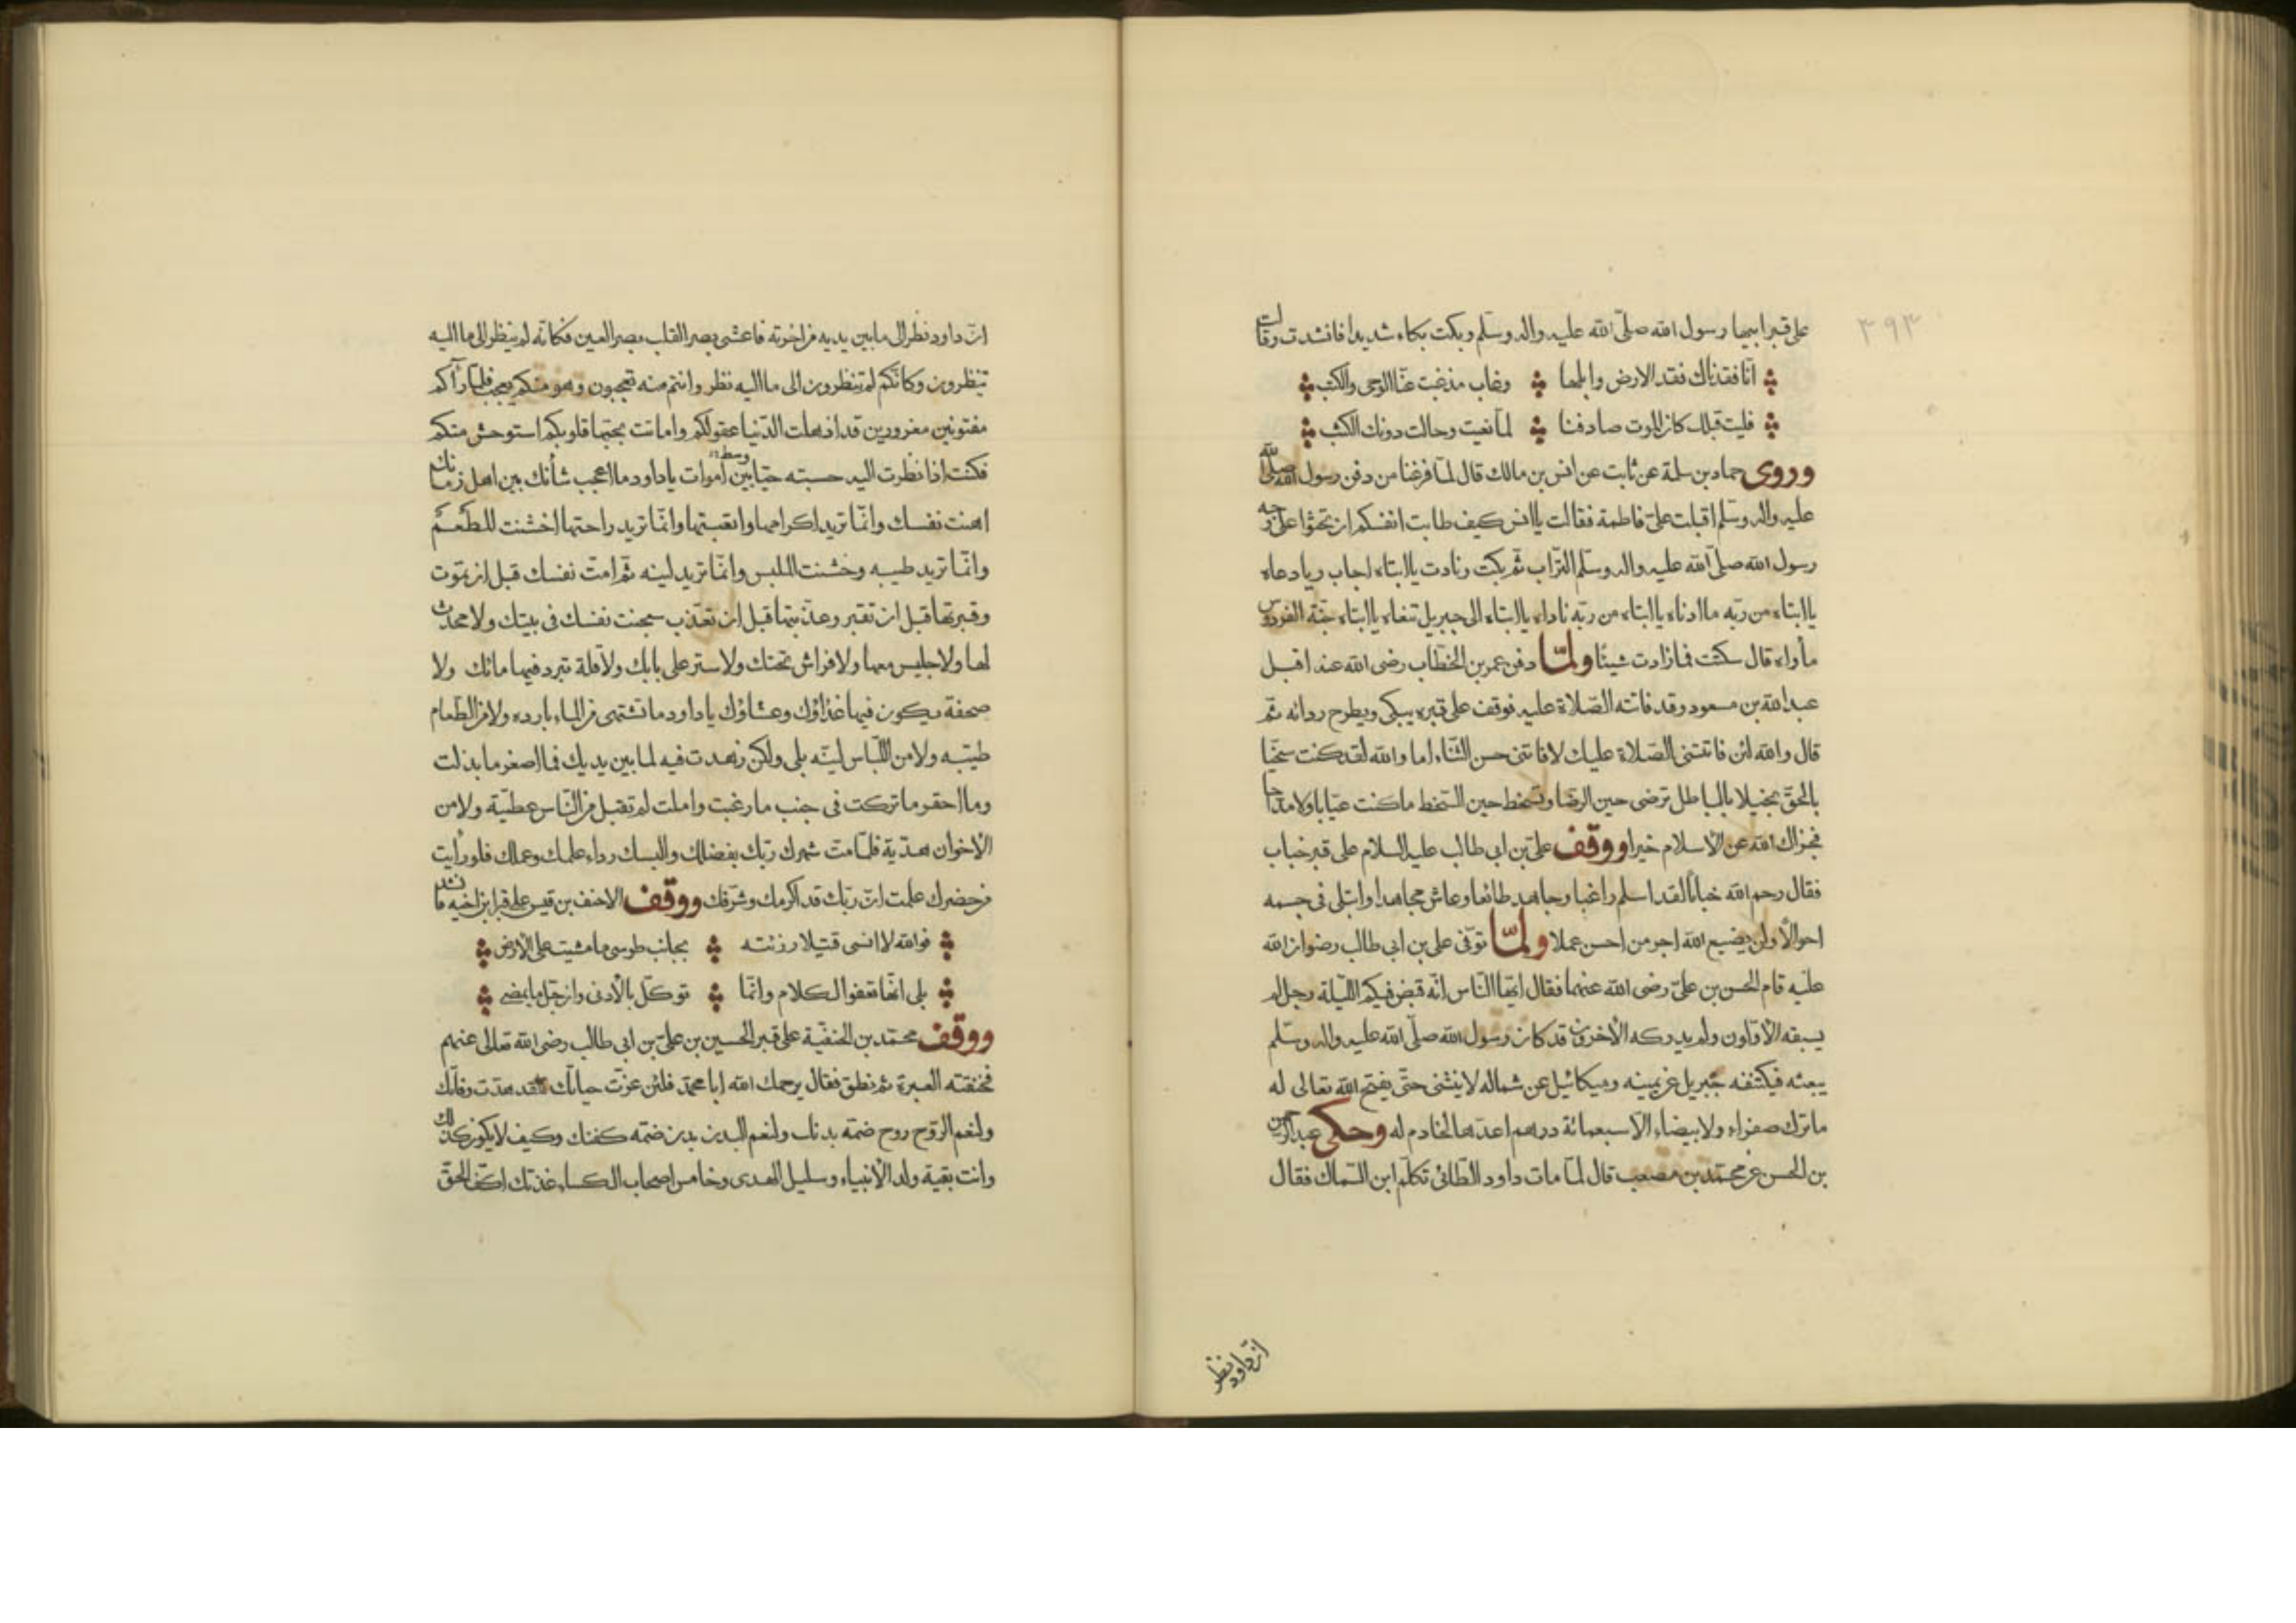 ٣٩٣
على قبر ابيها رسول الله صلّى الله عليه واله وسلّم وبكت بكاء شديدا فانشدت وقالت
انّا فقدناك فقد الارض وابلها وغاب مذ غبت عنّا الوحى والكتب
فليت قبلك كان الموت صادفنا لما نعيت وحالت دونك الكثب
وروى حماد بن سلمة عن ثابت عن انس بن مالك قال لمّا فرغنا من دفن رسول الله صلّى الله
عليه واله وسلّم اقبلت علىّ فاطمة فقالت ياانس كيف طابت انفسكم ان تحثوا على وجه
رسول الله صلّى الله عليه واله وسلّم التّراب ثمّ بكت ونادت ياابتاه اجاب ربا دعاه
ياابتاه من ربّه ماادناه ياابتاه من ربّه ناداه ياابتاه الى جبريل ننعاه ياابتاه جنّة الفردوس
مأواه قال سكتت فمازادت شيئا ولمّا دفن عمر بن الخطّاب رضى الله عنه اقبل
عبد الله بن مسعود وقد فاتته الصّلاة عليه فوقف على قبره يبكى ويطرح ردائه ثمّ
قال والله لئن فاتتنى الصّلاة عليك لا فاتنى حسن الثّناء اما والله لقد كنت سخيّا
بالحقّ بخيلا بالباطل ترضى حين الرضا وتسخط حين السّخط ماكنت عيّابا ولا مدّاحا
فجزاك الله عن الاسلام خيرا ووقف علىّ بن ابى طالب عليه السلام على قبر خباب
فقال رحم الله خبابا لقد اسلم راغبا وجاهد طائعا وعاش مجاهدا وابتلى فى جسمه
احوالا ولن يضيع الله اجر من احسن عملا ولمّا توفّى على بن ابى طالب رضوان الله
عليه قام الحسن بن علىّ رضى الله عنهما فقال ايّها النّاس انّه قبض فيكم اللّيلة رجل لم
يسبقه الاوّلون ولم يدركه الاخرون قد كان رسول الله صلّى الله عليه واله وسلّم
يبعثه فيكتنفه جبريل عن يمينه وميكائيل عن شماله لا ينثنى حتّى يفتح الله تعالى له
ماترك صفراء ولا بيضاء الّا سبعمائة درهم اعدّها لخادم له وحكى عبد الرحمن
بن الحسن عن محمّد بن مصعب قال لمّا مات داود الطّائى تكلّم ابن السّماك فقال
انّ داود نظر
انّ داود نظر الى مابين يديه من اخرته فاعشى بصر القلب بصر العين فكانّه لم ينظر الى مااليه
تنظرون وكانّكم لم تنظرون الى مااليه نظر وانتم منه تعجبون وهو منكم يعجب فلمّا رأكم
مفتونين مغرورين قد اذهلت الدّنيا عقولكم واماتت بحبّها قلوبكم استوحش منكم
فكنت اذا نظرت اليه حسبته حيّا بين وسط اموات ياداود مااعجب شأنك بين اهل زمانك
اهنت نفسك وانّما تريد اكرامها واتعبتها وانّما تريد راحتها اخشنت المطعم
وانّما تريد طيبه وخشنت الملبس وانّما تريد لينه ثمّ امتّ نفسك قبل ان تموت
وقبرتها قبل ان تقبر وعذّبتها قبل ان تعذّب سجنت نفسك فى بيتك ولا محدث
لها ولا جليس معها ولا فراش تحتك ولا ستر على بابك ولا قلة تبرد فيها مائك ولا
صحفة يكون فيها غذاؤك وعشاؤك ياداود ماتشتهى من الماء بارده ولا من الطّعام
طيّبه ولا من اللّباس ليّنه بلى ولكن زهدت فيه لما بين يديك فمااصغر مابذلت
ومااحقر ماتركت فى جنب مارغبت واملت لم تقبل من النّاس عطيّة ولا من
الاخوان هديّة فلمّا متّ شهرك ربّك بفضلك والبسك رداء علمك وعملك فلو رأيت
من حضرك علمت انّ ربّك قد اكرمك وشرّفك ووقف الاحنف بن قيس على قبر ابن اخيه فانشد
فوالله لا انسى قتيلا رزئته بجانب طوسى مامشيت على الارض
بلى انّها تعفو الكلام وانّما توكّل بالادنى وان جلّ مايمضى
ووقف محمّد بن الحنفيّة على قبر الحسين بن علىّ بن ابى طالب رضى الله تعالى عنهم
فخنقته العبرة ثمّ نطق فقال يرحمك الله ابا محمّد فلئن عزّت حياتك فقد هدّت وفاتك
ولنعم الرّوح روح ضمّه بدنك ولنعم البدن بدن ضمّه كفنك وكيف لا يكون كذلك
وانت بقية ولد الانبياء وسليل الهدى وخامس اصحاب الكساء غذتك اكفّ الحقّ